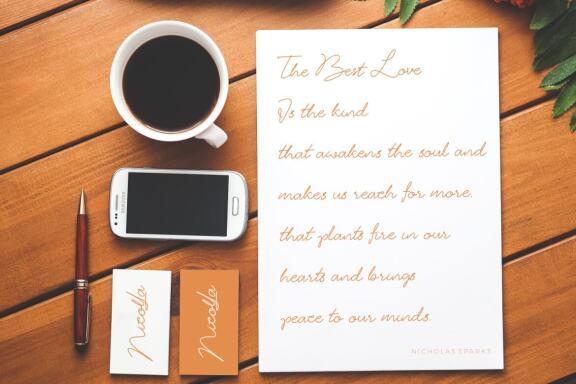 The Best Love
Is the kind
that awakens the soul and
makes us reach for more,
that plants fire in our
hearts and brings
peace to our minds.
NICHOLAS SPARKS
SAMSUNG
Nicolla
Nicolla